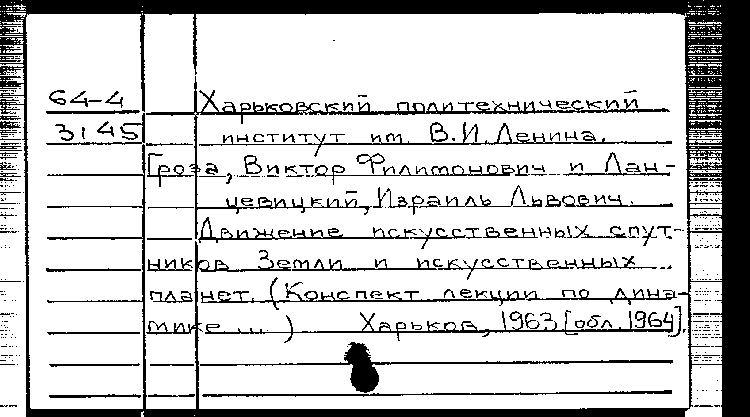 64-4 Харьковский политехнический
3145 институт им. В.И. Ленина.
Гроза, Виктор Филимонович и Лан-
цевицкий, Израиль Львович.
Движение искусственных спут-
ников Земли и искусственных
планет. (Конспект лекции по дина-
мике ... ) Харьков, 1963 [обл. 1964].